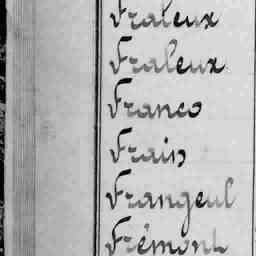 Fraleux
Fraleux
Franco
Frain
Frangeul
Frémont